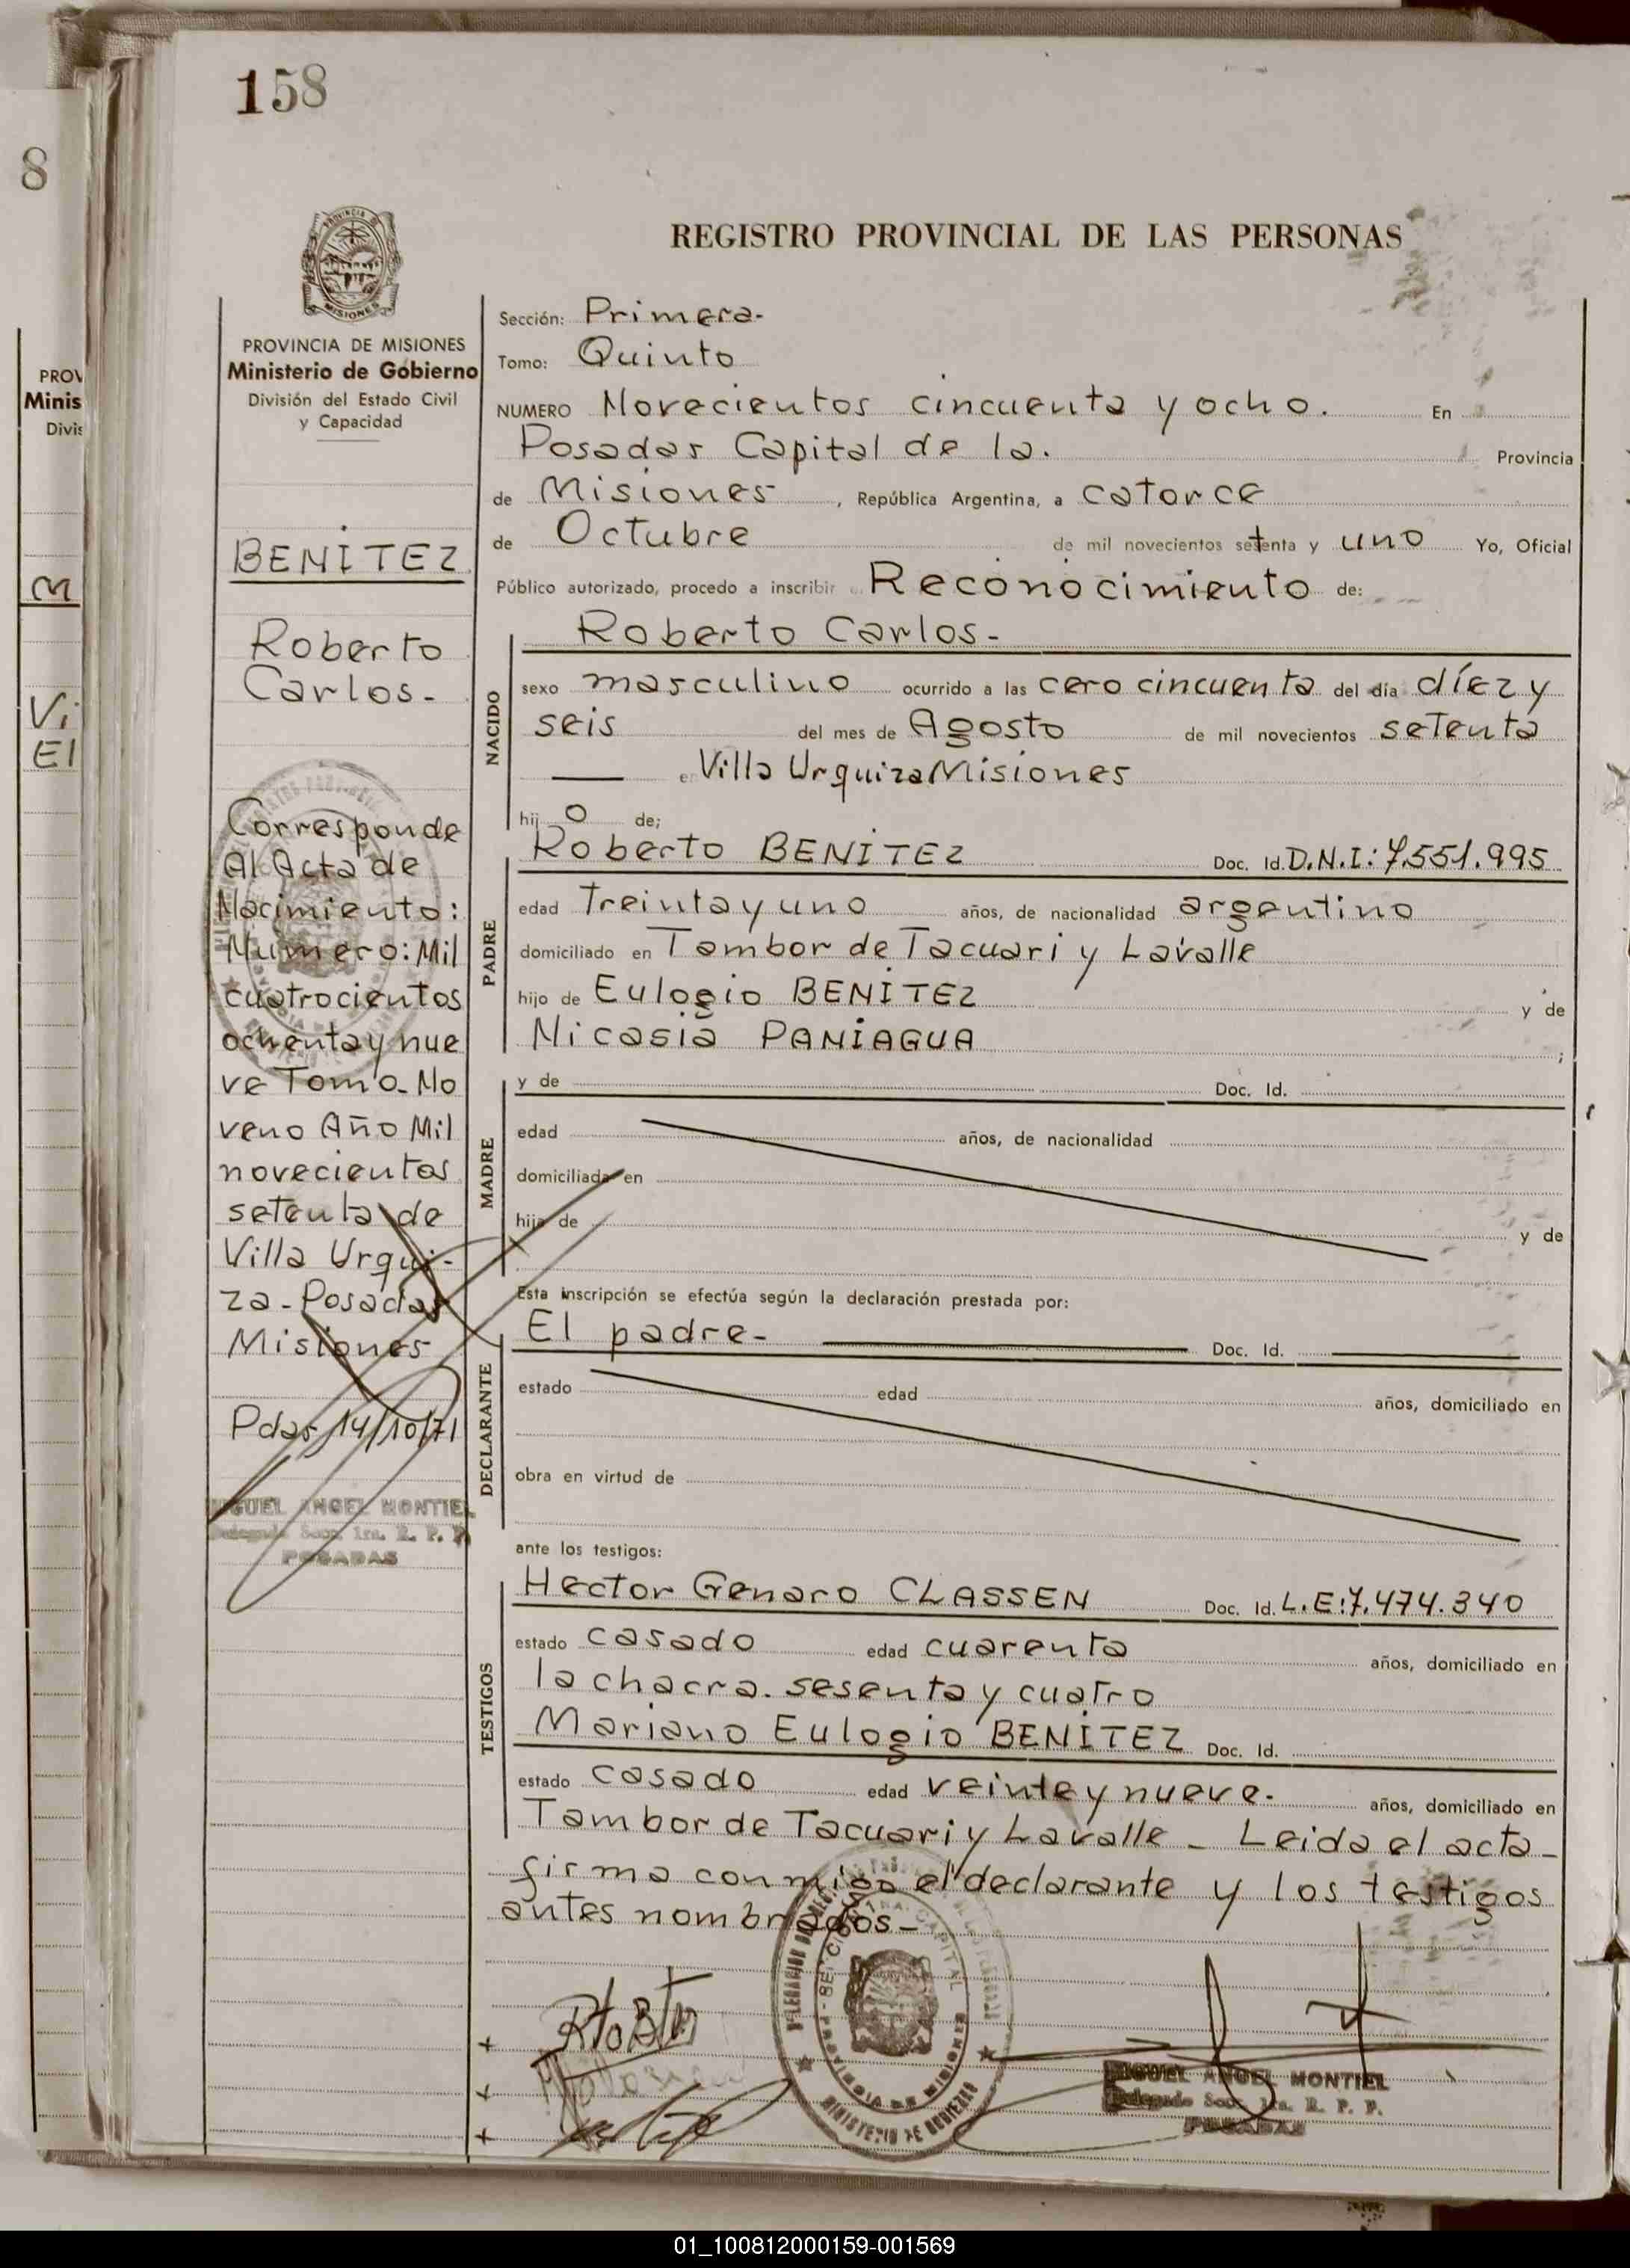 158
8
REGISTRO PROVINCIAL DE LAS PERSONAS
PROVINCIA DE
MISIONES
PROVINCIA DE MISIONES
Ministerio de Gobierno
División del Estado Civil
y Capacidad
BENÍTEZ
Roberto
Carlos-
Corresponde
Al Acta de
Nacimiento:
Numero: Mil
cuatrocientos
ochenta y nue
ve Tomo-No
veno Año Mil
novecientos
setenta de
Villa Urqui-
za-Posadas
Misiones
Pdas, 14/10/71
MIGUEL ANGEL MONTIEL
Delegado Secc. 1ra. R. P. P.
POSADAS
Sección: Primera-
Tomo: Quinto
NUMERO Novecientos cincuenta y ocho. En
Posadas Capital de la. Provincia
de Misiones, República Argentina, a catorce
de Octubre de mil novecientos setenta y uno Yo, Oficial
Público autorizado, procedo a inscribir Reconocimiento de:
NACIDO
Roberto Carlos-
sexo masculino ocurrido a las cero cincuenta del día díez y
seis del mes de Agosto de mil novecientos setenta
en Villa Urquiza Misiones
hij o de;
PADRE
Roberto BENÍTEZ Doc. Id. D.N.I: 7.551.995
edad Treinta y uno años, de nacionalidad argentino
domiciliado en Tambor de Tacuari y Lavalle
hijo de Eulogio BENÍTEZ y de
Nicasia PANIAGUA ;
MADRE
y de Doc. Id.
edad años, de nacionalidad
domiciliada en
hija de y de
Esta inscripción se efectúa según la declaración prestada por:
DECLARANTE
El padre- Doc. Id.
estado edad años, domiciliado en
obra en virtud de
ante los testigos:
TESTIGOS
Hector Genaro CLASSEN Doc. Id. L.E:7.474.340
estado casado edad cuarenta años, domiciliado en
la chacra. sesenta y cuatro
Mariano Eulogio BENÍTEZ Doc. Id.
estado casado edad veinte y nueve. años, domiciliado en
Tambor de Tacuari y Lavalle - Leida el acta-
firma conmigo el declarante y los testigos
antes nombrados-
PROVINCIA DE MISIONES
MINISTERIO DE GOBIERNO
MIGUEL ANGEL MONTIEL
Delegado Secc. 1ra. R. P. P.
POSADAS
PROV
Minis
Divis
Vi
El
01_100812000159-001569